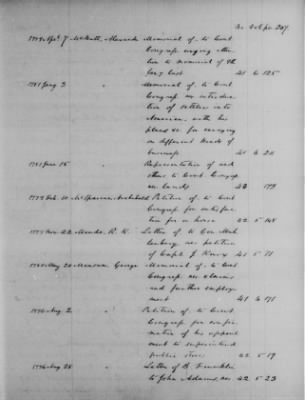 1779 Apr. 7 Memorial of, to Cont
Congress urging atten
tion to memorial of 4th
Jany last 41 6 125
1781 Jany 3 " Memorial of, to Cont
Congress, on introduc
tion of settlers into
America, with his
plans &c for carrying
on different kinds of
business 41 6
1781 June 15 " Representation of and
others to Cont. Congress
on lands
1779 Feb. McSparren, Archibald Petition of, to Cont
Congress for satisfac
tion for a horse 42 5 148
Nov. 22 Meade, R. K. Letter of, to
on petition
of Capt. J. 41 5 71
May 24 Measam, George Memorial of, to Cont
Congress, on claims
and further employ
ment 41 6 171
1776 Aug. 2 " Petition of, to Cont
Congress for confir
mation of his appoint
ment to superintend
public store 42 5 19
1776 Aug 28 " Letter of B. Franklin
to John Adams, on 42 5 23